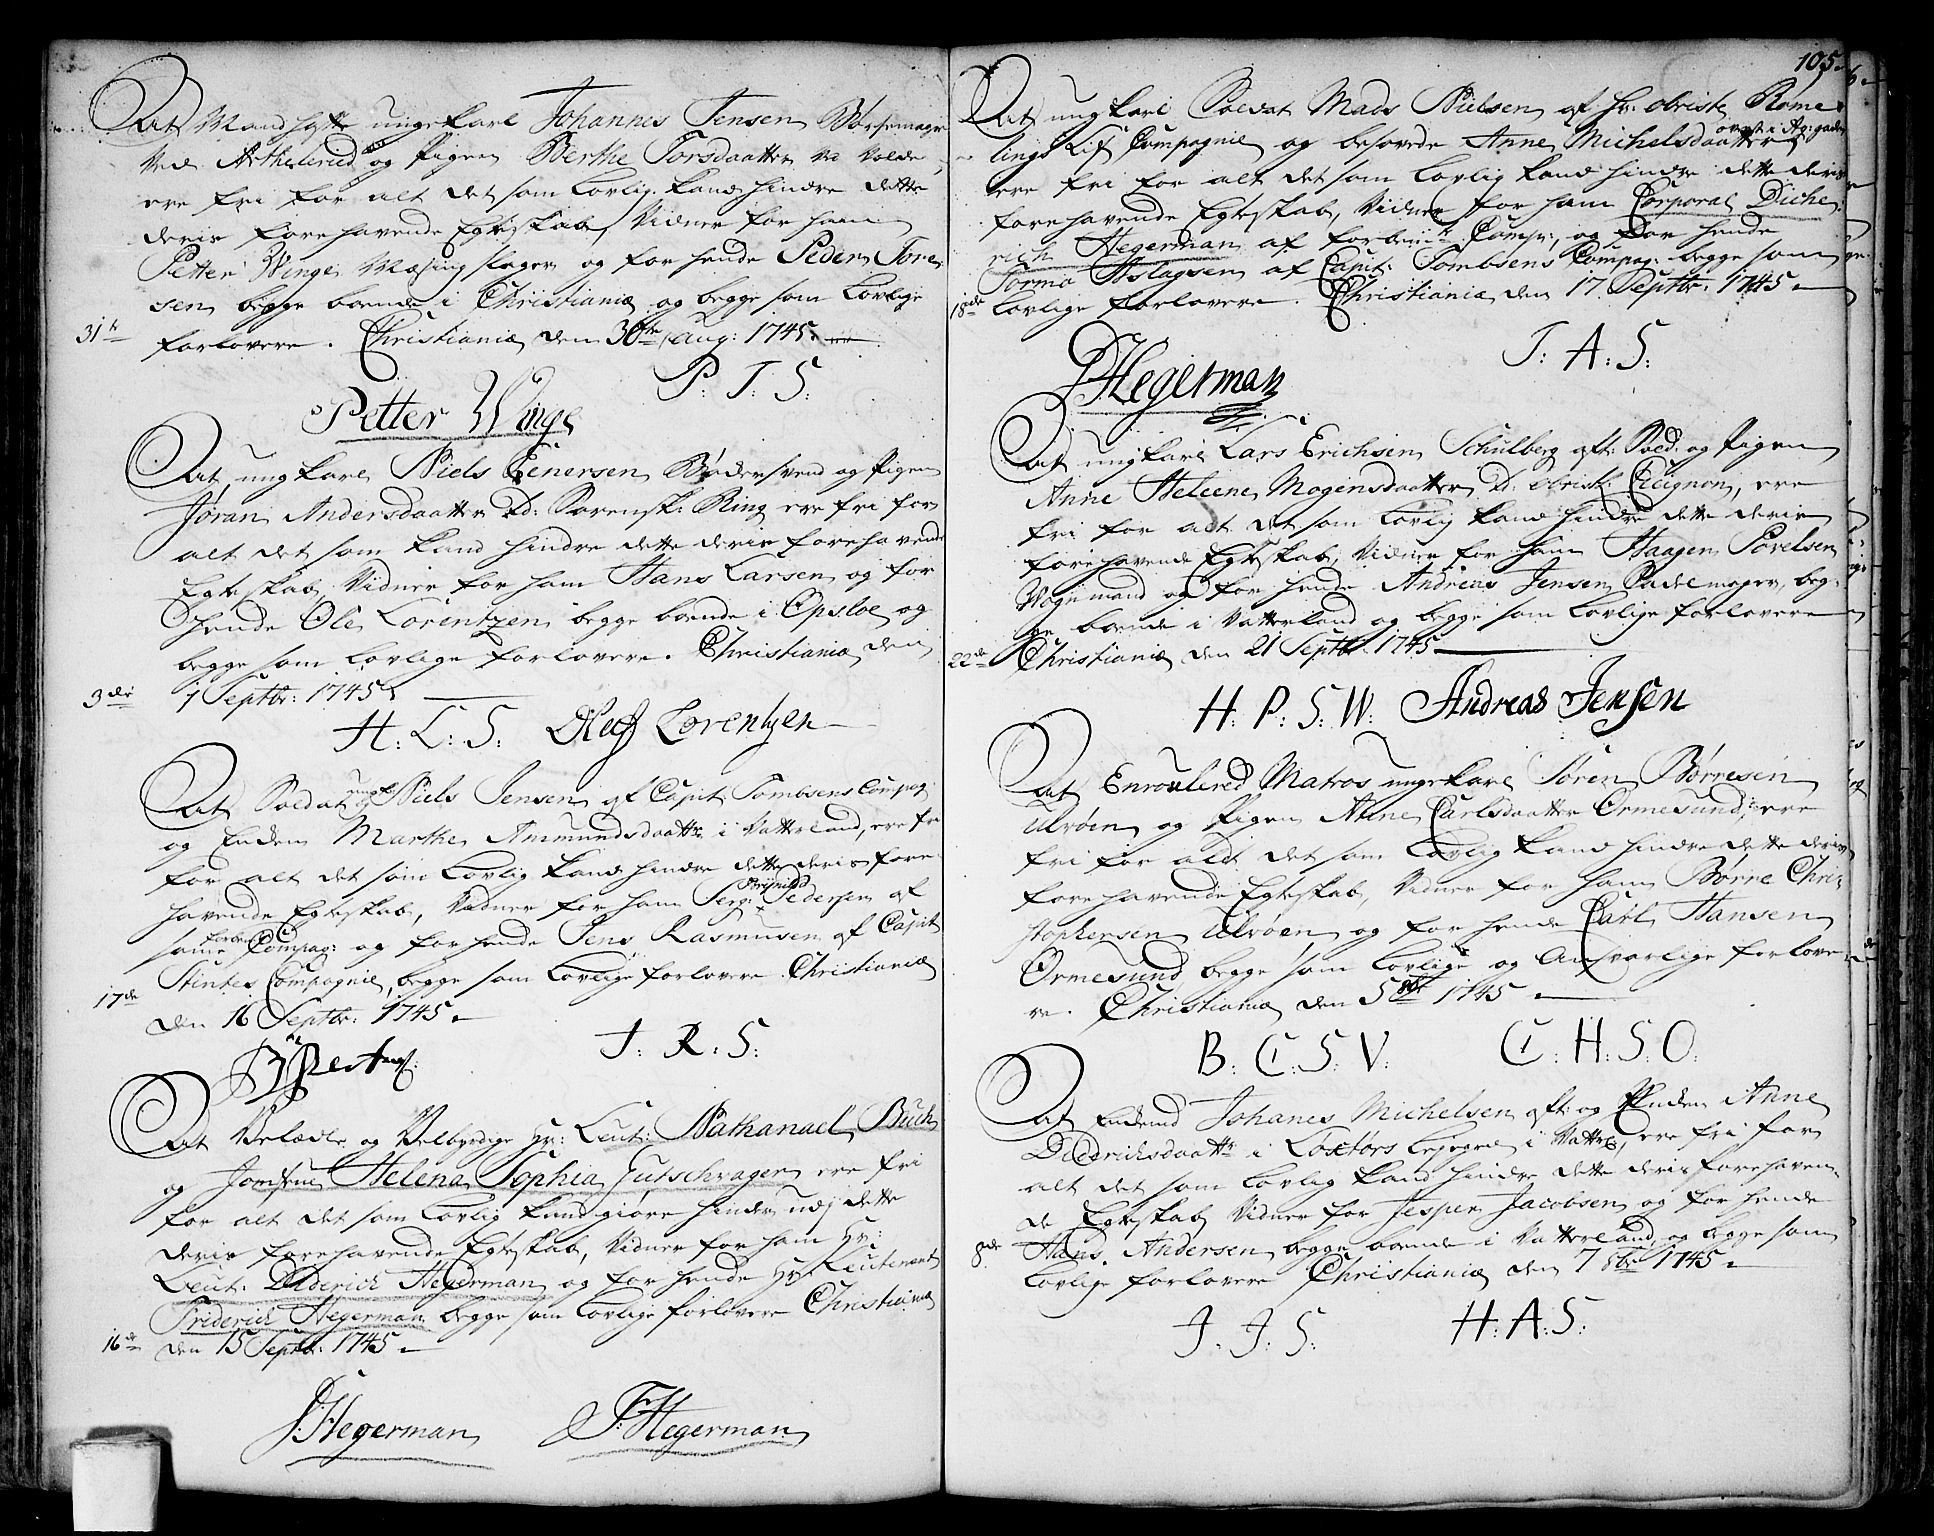 At Mandhafte ungekarl Johannes Jensen Børsemager
Ved Artheleried og Pigen Berthe Torsdaatter
ere fri for alt det som Lovlig kand hindre dette
deris forehavende Egteskab, Vidner for ham
Petter Winge Mæsing slager og for hende Peder Tore
sen begge boende i Christiania og begge som Lovlige
31te forlovere. Christiania den 30te Aug: 1745.
P: T: S:
Petter Winge
At ungkarl Niels Eenersen Bødersvend og Pigen
Jøran Andersdaatter Ring ere fri for
alt det som kand hindre dette deris forehavende
Egteskab, Vidner for ham Hans Larsen og for
hende Ole Lorentzen begge boende i Opsloe og
begge som Lovlige forlovere. Christiania den
3die 1 Septbr: 1745.
H: L: S: Oluf Lorentzen
At Soldat ungk. Niels Jensen af Capit Tombsens Compag
og Enchen Marthe Ammundsdaattr i Vatterland, ere fri
for alt det som Lovlig kand hindre dette deris fore
havende Egteskab, Vidner for ham Serg: Pedersen af
samme Compag: og for hende Jens Rasmusen af Capit
Stintes Compagnie, begge som Lovlige forlovere. Christiania
17de den 16 Septbr: 1745.
J: R: S:
At Velædle og Velbyrdige Hr: Leut: Nathanael Buch
og Jomfrue Helena Sophia Gutschvager ere fri
for alt det som Lovlig kand giøre hinder udj dette
deris forehavende Egteskab, Vidner for ham Hr:
Leut: Diderich Hegerman og for hende Hr Leutenant
Friderich Hegerman begge som Lovlige forlovere Christiania
16de den 15 Septbr: 1745.
D: Hegerman F: Hegerman
105.
At ungkarl Soldat Mads Nielsen af Hr: Obriste Rome
lings Lif Compagnie og besovede Anne Michelsdaatter
ere fri for alt det som Lovlig kand hindre dette deris
forehavende Egteskab, Vidner for ham Corporal Diche
rich Hegerman af forbem:te Comp:, og for hende
Tormo Aslagsen af Capit: Tombsens Compag: begge som
18de Lovlige forlovere. Christiania den 17 Septbr: 1745.
T: A: S:
DHegerman
At ungkarl Lars Erichsen Schulberg aft: Sold: og Pigen
Anne Heleene Mogensdaatter Obrist: Cicignon, ere
fri for alt det som Lovlig kand hindre dette deris
forehavende Egteskab, Vidner for ham Haagen Povelsen
Vognmand og for hende Andreas Jensen Sadelmager, beg-
ge boende i Vatterland og begge som Lovlige forlovere
22de Christiania den 21 Septbr. 1745
H: P: S: W: Andreas Jensen
At Enroulered Matros ungekarl Søren Børresen
Ulvøen og Pigen Anne Carlsdaatter Ormesund, ere
fri for aldt det som Lovlig kand hindre dette deris
forehavende Egteskab, Vidner for ham Børre Chri-
stophersen Ulvøen og for hende Carl Hansen
Ormesund begge som Lovlige og Ansvarlige forlove
re. Christiania den 5 8br 1745.
B: C: S: V: C: H: S: O:
At Enchemd Johanes Michelsen aft: og Enchen Anne
Dideriksdaattr i Loxtors Løkgen i Vattrl, ere fri for
alt det som Lovlig kand hindre dette deris forehaven-
de Egteskab Vidner for Jesper Jacobsen og for hende
8de Hans Andersen begge boende i Vatterland, og begge som
Lovlige forlovere Christiania den 7 8br 1745.
J: J: S: H: A: S: